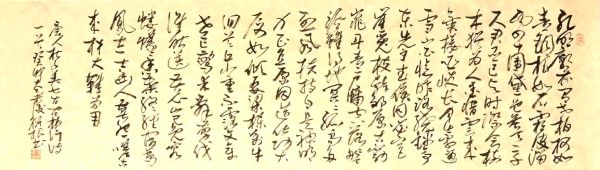 孔明廟前有老柏柯如
青銅根如石霜皮溜雨
四十圍黛色參天二千
尺君臣已與時際會樹
木猶為人愛惜雲來
氣接巫峽長月出寒通
雪山白憶昨路繞錦亭
東先主武侯同閟宮
崔嵬枝幹郊原古窈
窕丹青戶牖空落落盤
踞雖得地冥冥孤高多
烈風扶持自是神明
力正直原因造化功大
廈如傾要梁棟萬牛
回首丘山重不露文章
世已驚未辭翦伐
誰能送苦心豈免容
螻蟻香葉終經宿鸞
鳳志士幽人莫怨嗟古
來材大難為用
古柏行詩
一首